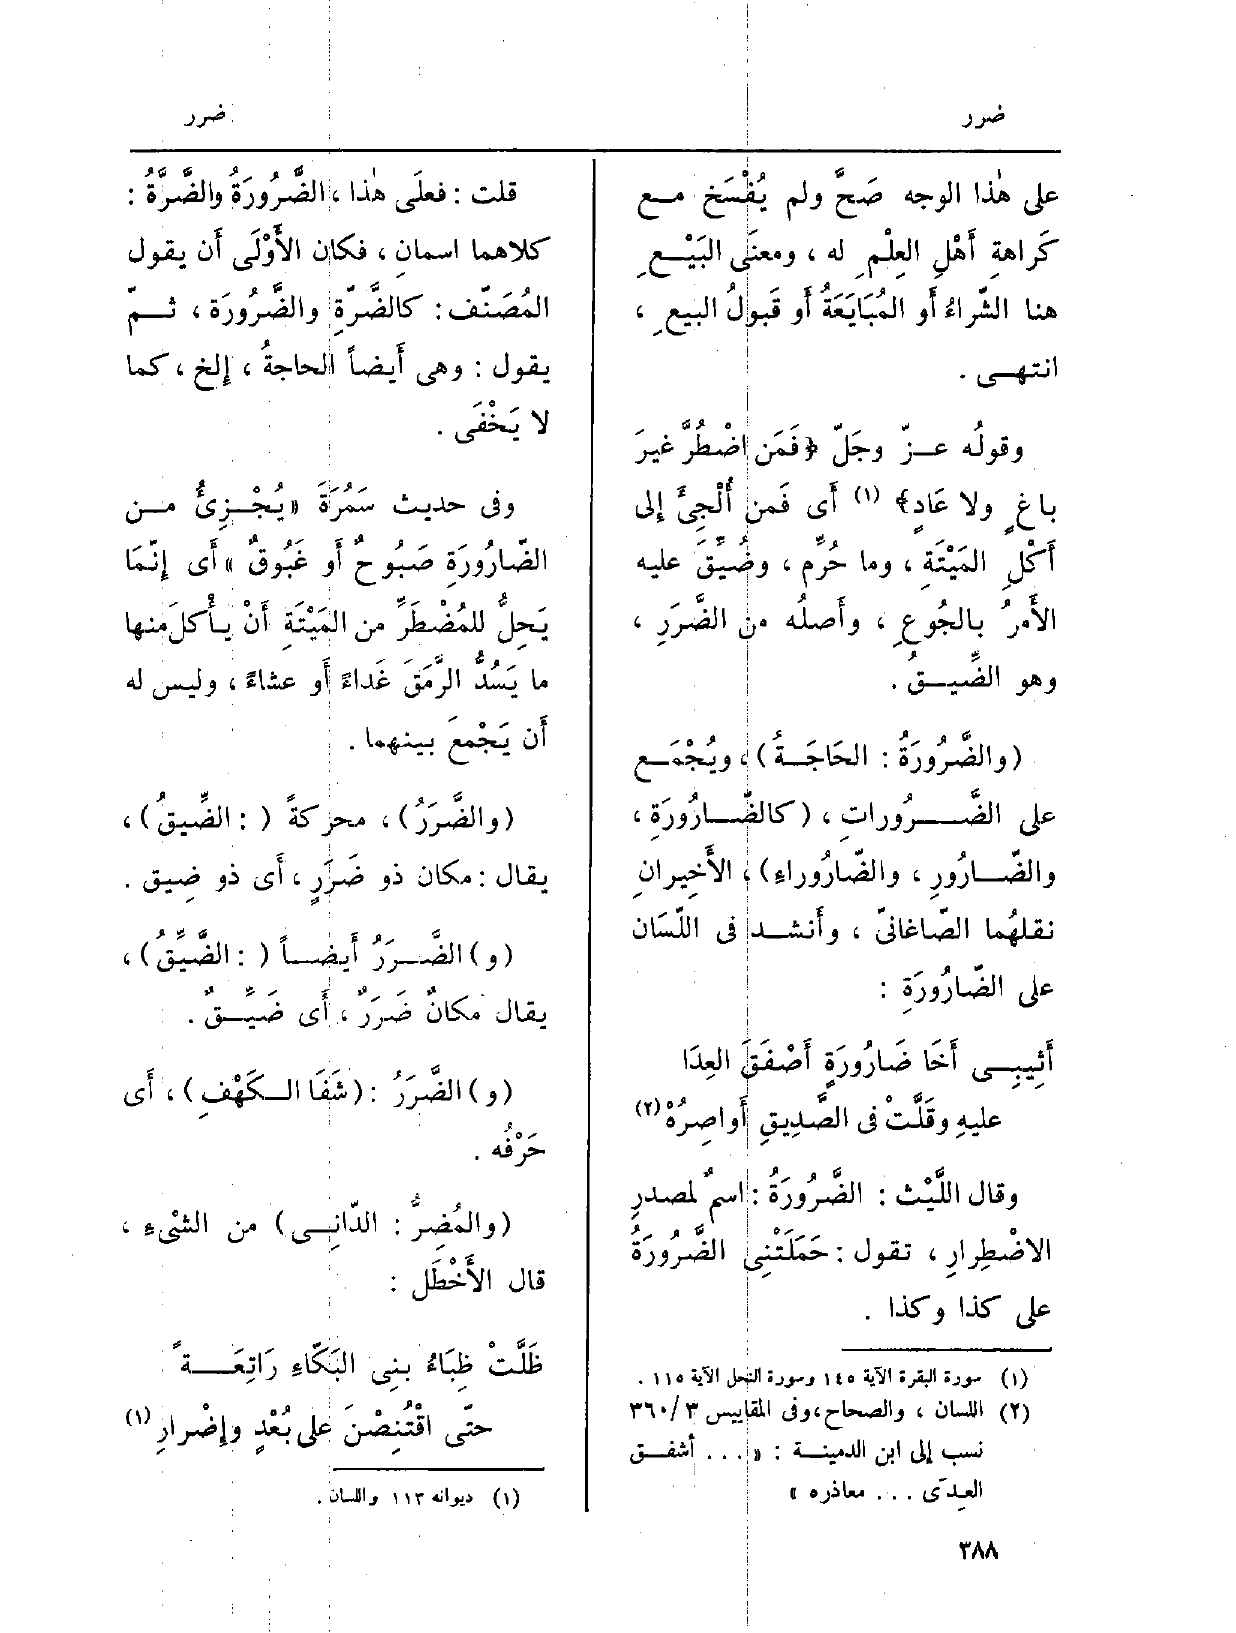 ضرر
ضرر
على هٰذا الوجه صَحَّ ولم يُفْسَخ مع
كَراهةِ أَهْلِ العِلْمِ له ، ومعنَى البَيْعِ
هنا الشِّراءُ أَو المُبَايَعَةُ أَو قَبولُ البيعِ ،
انتهى .
وقولُه عزّ وجَلّ ﴿فَمَن اضْطُرَّ غيرَ
باغٍ ولا عَادٍ﴾ (١) أَى فَمن أُلْجِئَ إِلى
أَكْلِ المَيْتَةِ ، وما حُرِّم ، وضُيِّقَ عليه
الأَمرُ بالجُوعِ ، وأَصلُه من الضَّرَرِ ،
وهو الضِّيقُ .
(والضَّرُورَةُ : الحَاجَةُ) ، ويُجْمَع
على الضَّرُوراتِ ، (كالضَّارُورَةِ ،
والضّارُورِ ، والضّارُوراءِ) ، الأَخِيرانِ
نقلهُما الصّاغانىّ ، وأَنشد فى اللّسَان
على الضّارُورَةِ :
أَثِيبِى أَخَا ضَارُورَةٍ أَصْفَقَ العِدَا
عليهِ وقَلَّتْ فى الصَّدِيقِ أَواصِرُهْ (٢)
وقال اللَّيْث : الضَّرُورَةُ : اسمٌ لمصدرِ
الاضْطِرارِ ، تقول : حَمَلَتْنِى الضَّرُورَةُ
على كذا وكذا .
(١) سورة البقرة الآية ١٤٥ وسورة النحل الآية ١١٥ .
(٢) اللسان ، والصحاح ، وفى المقاييس ٣/ ٣٦٠
نسب إلى ابن الدمينة : « . . . أشفق
العِدَى . . . معاذره »
قلت : فعلَى هٰذا ، الضَّرُورَةُ والضَّرَّةُ :
كلاهما اسمانِ ، فكان الأَوْلَى أَن يقول
المُصَنّف : كالضَّرّةِ والضَّرُورَة ، ثمّ
يقول : وهى أَيضاً الحاجةُ ، إِلخ ، كما
لا يَخْفَى .
وفى حديث سَمُرَةَ « يُجْزِئُ من
الضّارُورَةِ صَبُوحٌ أَو غَبُوقٌ » أَى إِنّمَا
يَحِلُّ للمُضْطَرِّ من المَيْتَةِ أَنْ يأْكلَ منها
ما يَسُدُّ الرَّمَقَ غَداءً أَو عشاءً ، وليس له
أَن يَجْمعَ بينهما .
(والضَّرَرُ) ، محركةً ( : الضِّيقُ) ،
يقال : مكان ذو ضَرَرٍ ، أَى ذو ضِيق .
(و) الضَّرَرُ أَيضاً ( : الضَّيِّقُ) ،
يقال مكانٌ ضَرَرٌ ، أَى ضَيِّقٌ .
(و) الضَّرَرُ : (شَفَا الكَهْفِ) ، أَى
حَرْفُه .
(والمُضِرُّ : الدّانِى) من الشىْءِ ،
قال الأَخْطَل :
ظَلَّتْ ظِبَاءُ بنِى البَكّاءِ رَاتِعَةً
حتّى اقْتُنِصْنَ على بُعْدٍ وإِضْرارِ (١)
(١) ديوانه ١١٣ واللسان .
٣٨٨